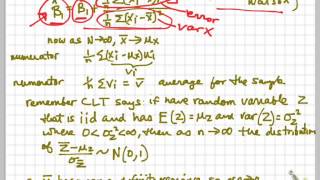 β̂₁ = β₁ + 1/n Σ(Xi
1/n Σ(Xi - X̄)²
error
var x
now as N→∞, X̄ → μx
numerator 1/n Σ(Xi - μx)ui
numerator 1/n Σvi = v̄ average for the sample
remember CLT says: if have random variable Z
that is iid and has E(Z) = μz and var(Z) = σz²
where 0<σz²<∞, then as n→∞ the distribution
of Z̄ - μz / σz̄ ~ N(0,1)